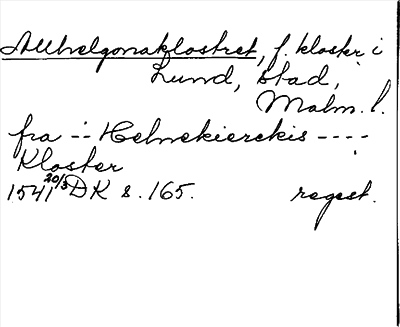 Allhelgonaklostret, f. kloster i
Lund, stad,
Malm. l.
fra -:- Helnekierckis ----
Kloster
1541 20/3 DK s. 165. regest.